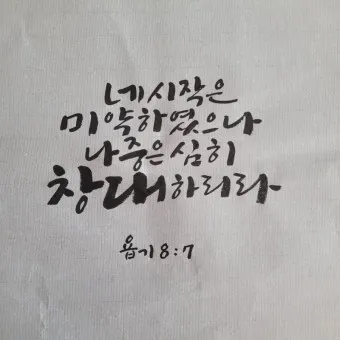 네 시작은
미약하였으나
나중은 심히
창대하리라
욥기 8:7